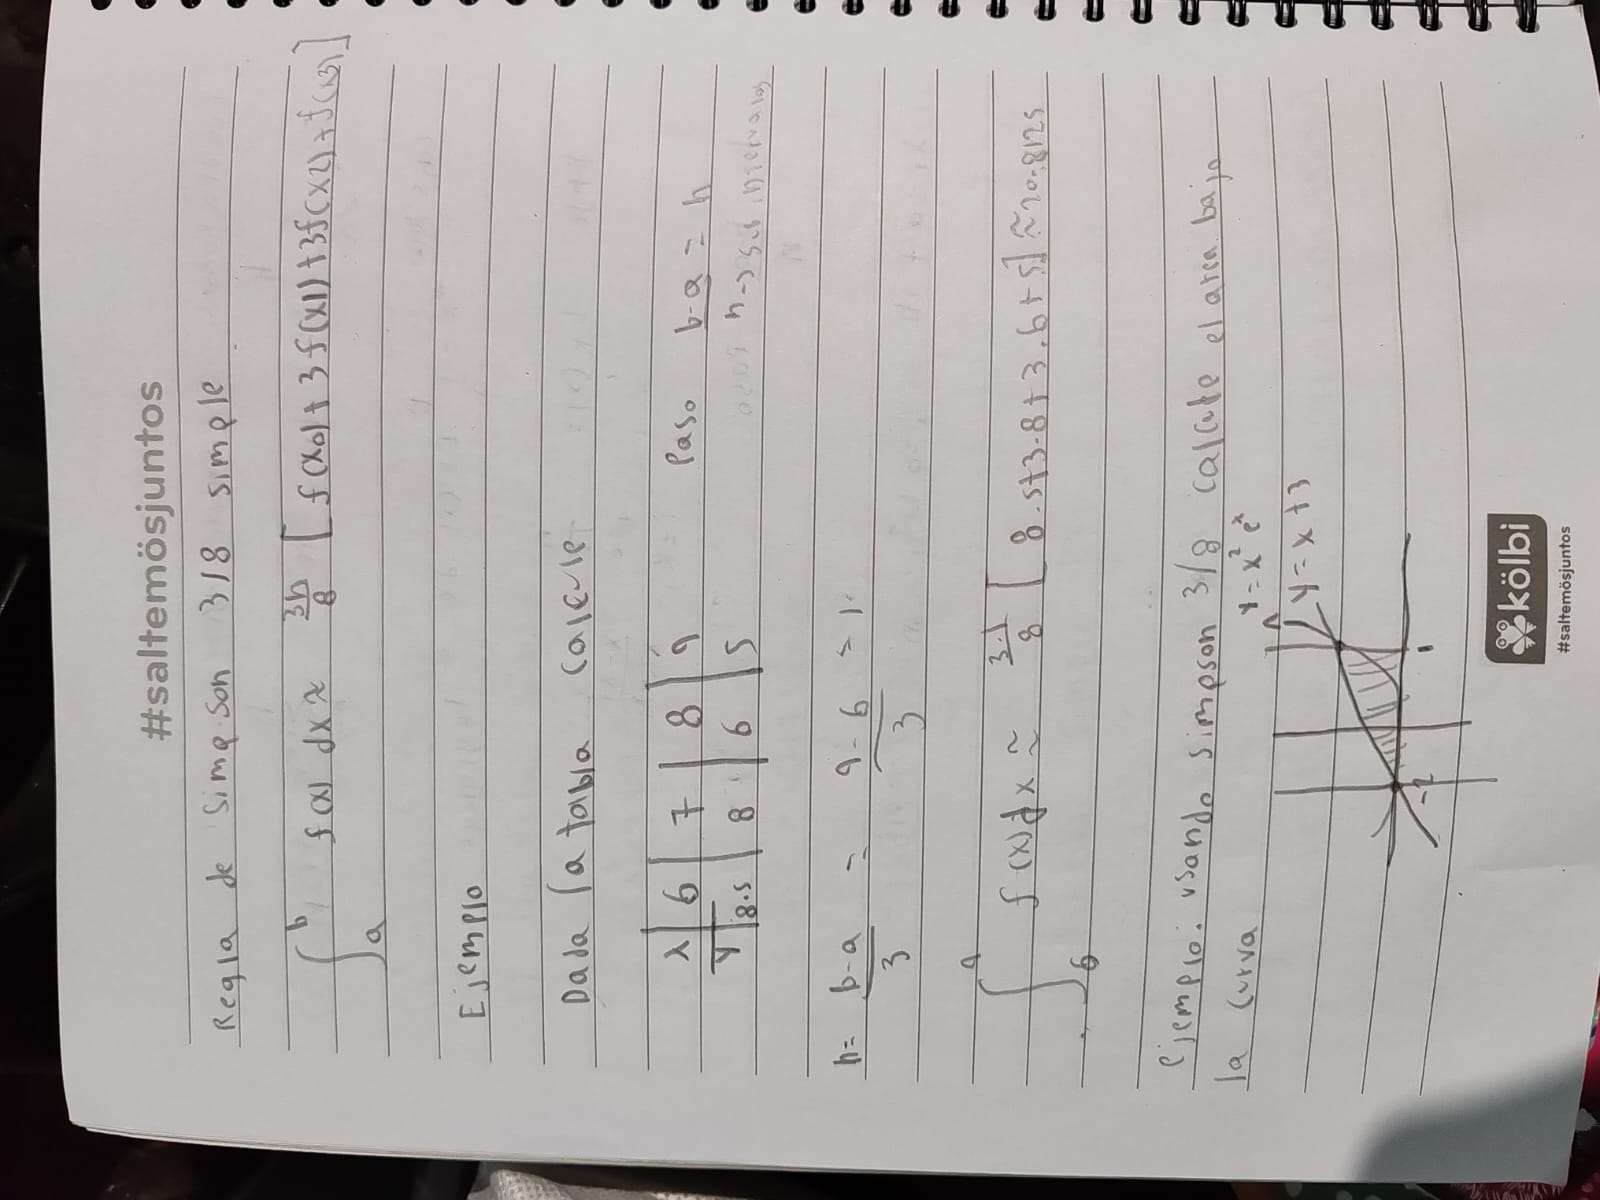 #saltemösjuntos
Regla de Simpson 3/8 simple
∫_a^b f(x) dx ≈ 3h/8 [f(x0) + 3f(x1) + 3f(x2) + f(x3)]
Ejemplo
Dada la tabla calcule
x | 6 | 7 | 8 | 9
y | 8.5 | 8 | 6 | 5
Paso b-a/n = h
n → sub intervalos
h = b-a/3 = 9-6/3 = 1
∫_6^9 f(x)dx ≈ 3·1/8 [8.5+3·8+3·6+5] ≈ 20.8125
Ejemplo: usando simpson 3/8 calcule el area bajo
la curva
y = x² eˣ
y = x + 3
-2 1
kölbi
#saltemösjuntos